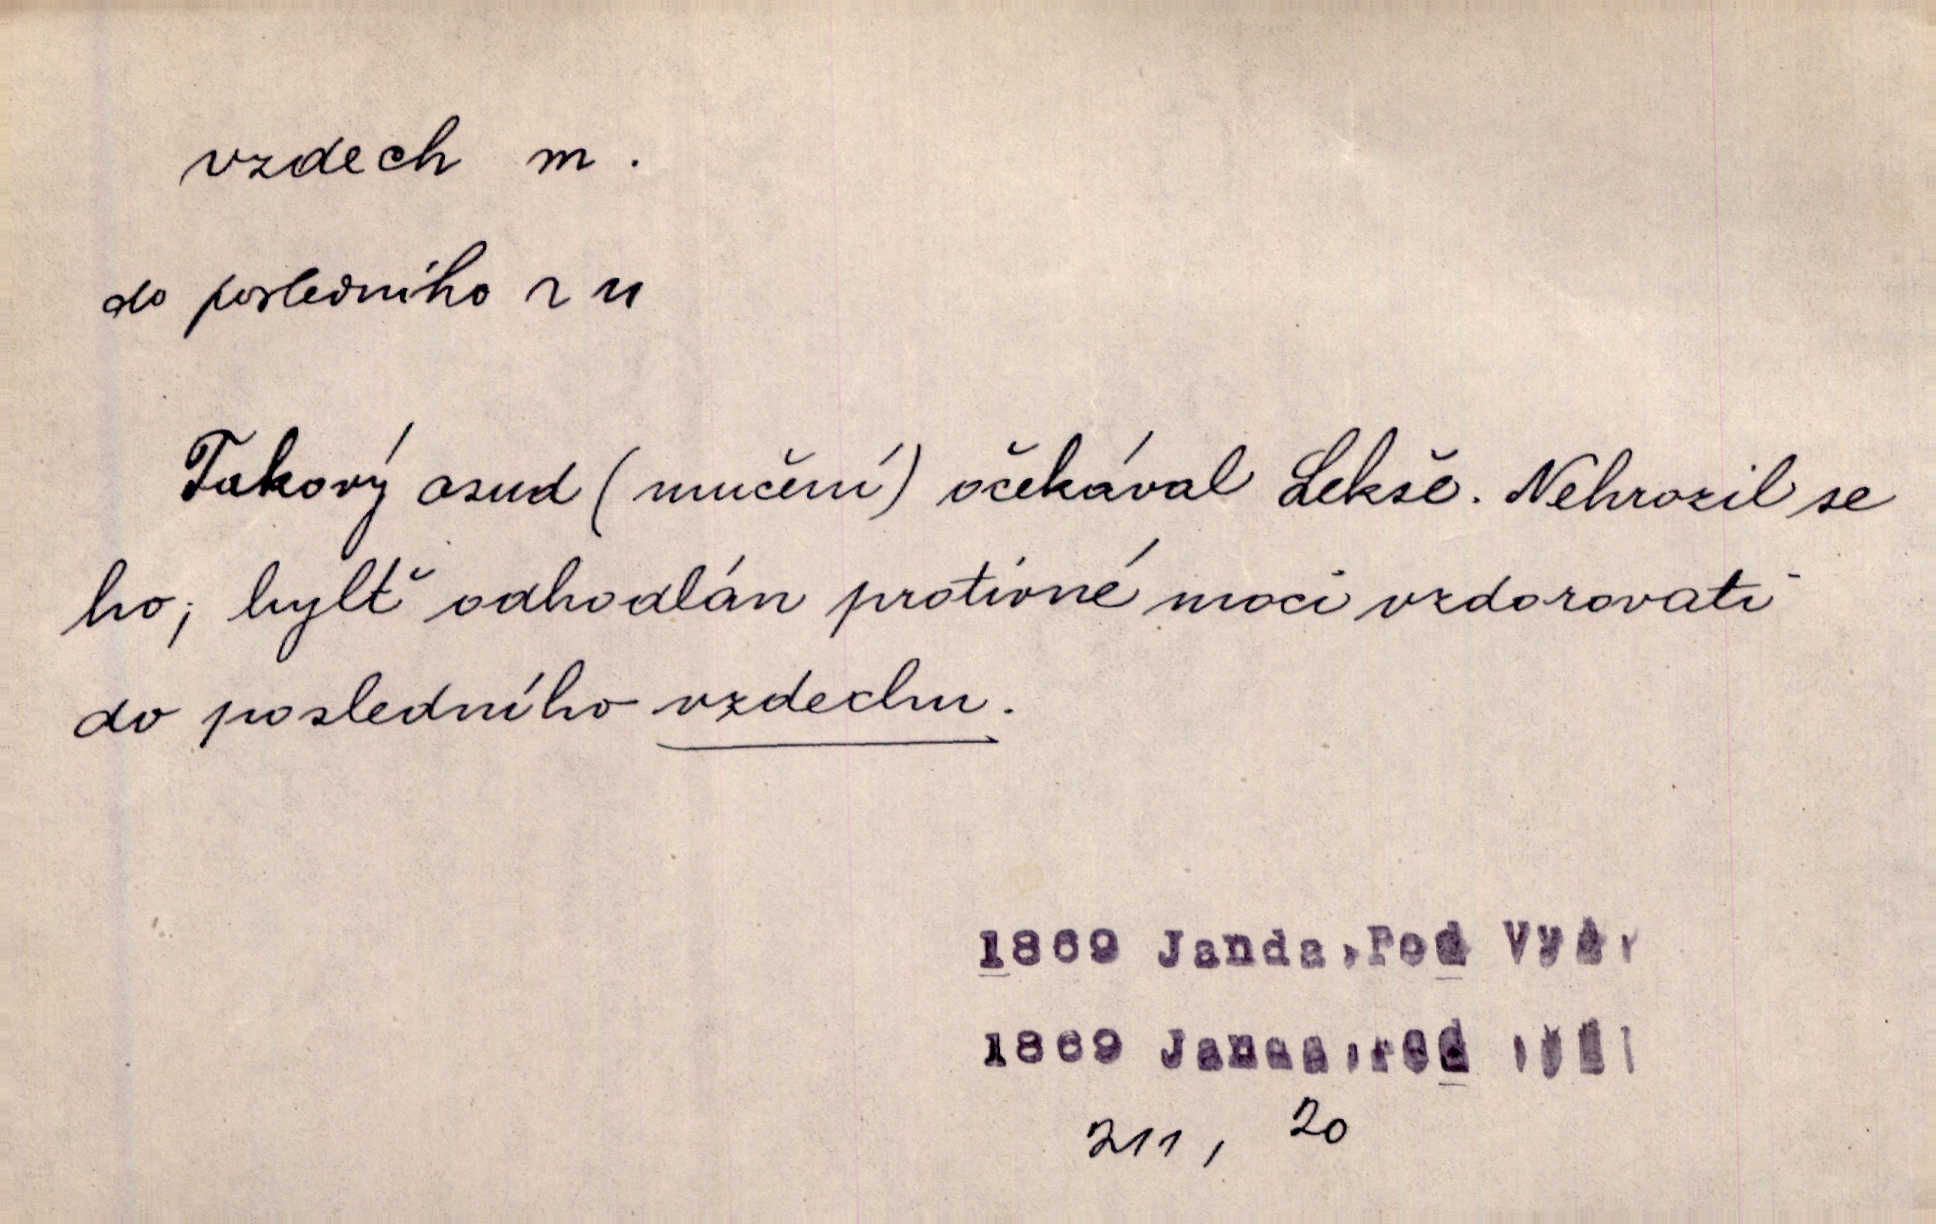 vzdech m.
do posledního ~ u
Takový osud (mučení) očekával Lekše. Nehrozil se
ho; bylť odhodlán protivné moci vzdorovati
do posledního vzdechu.
1869 Janda, Pod Vyš.
1869 Janda, Pod
211, 20